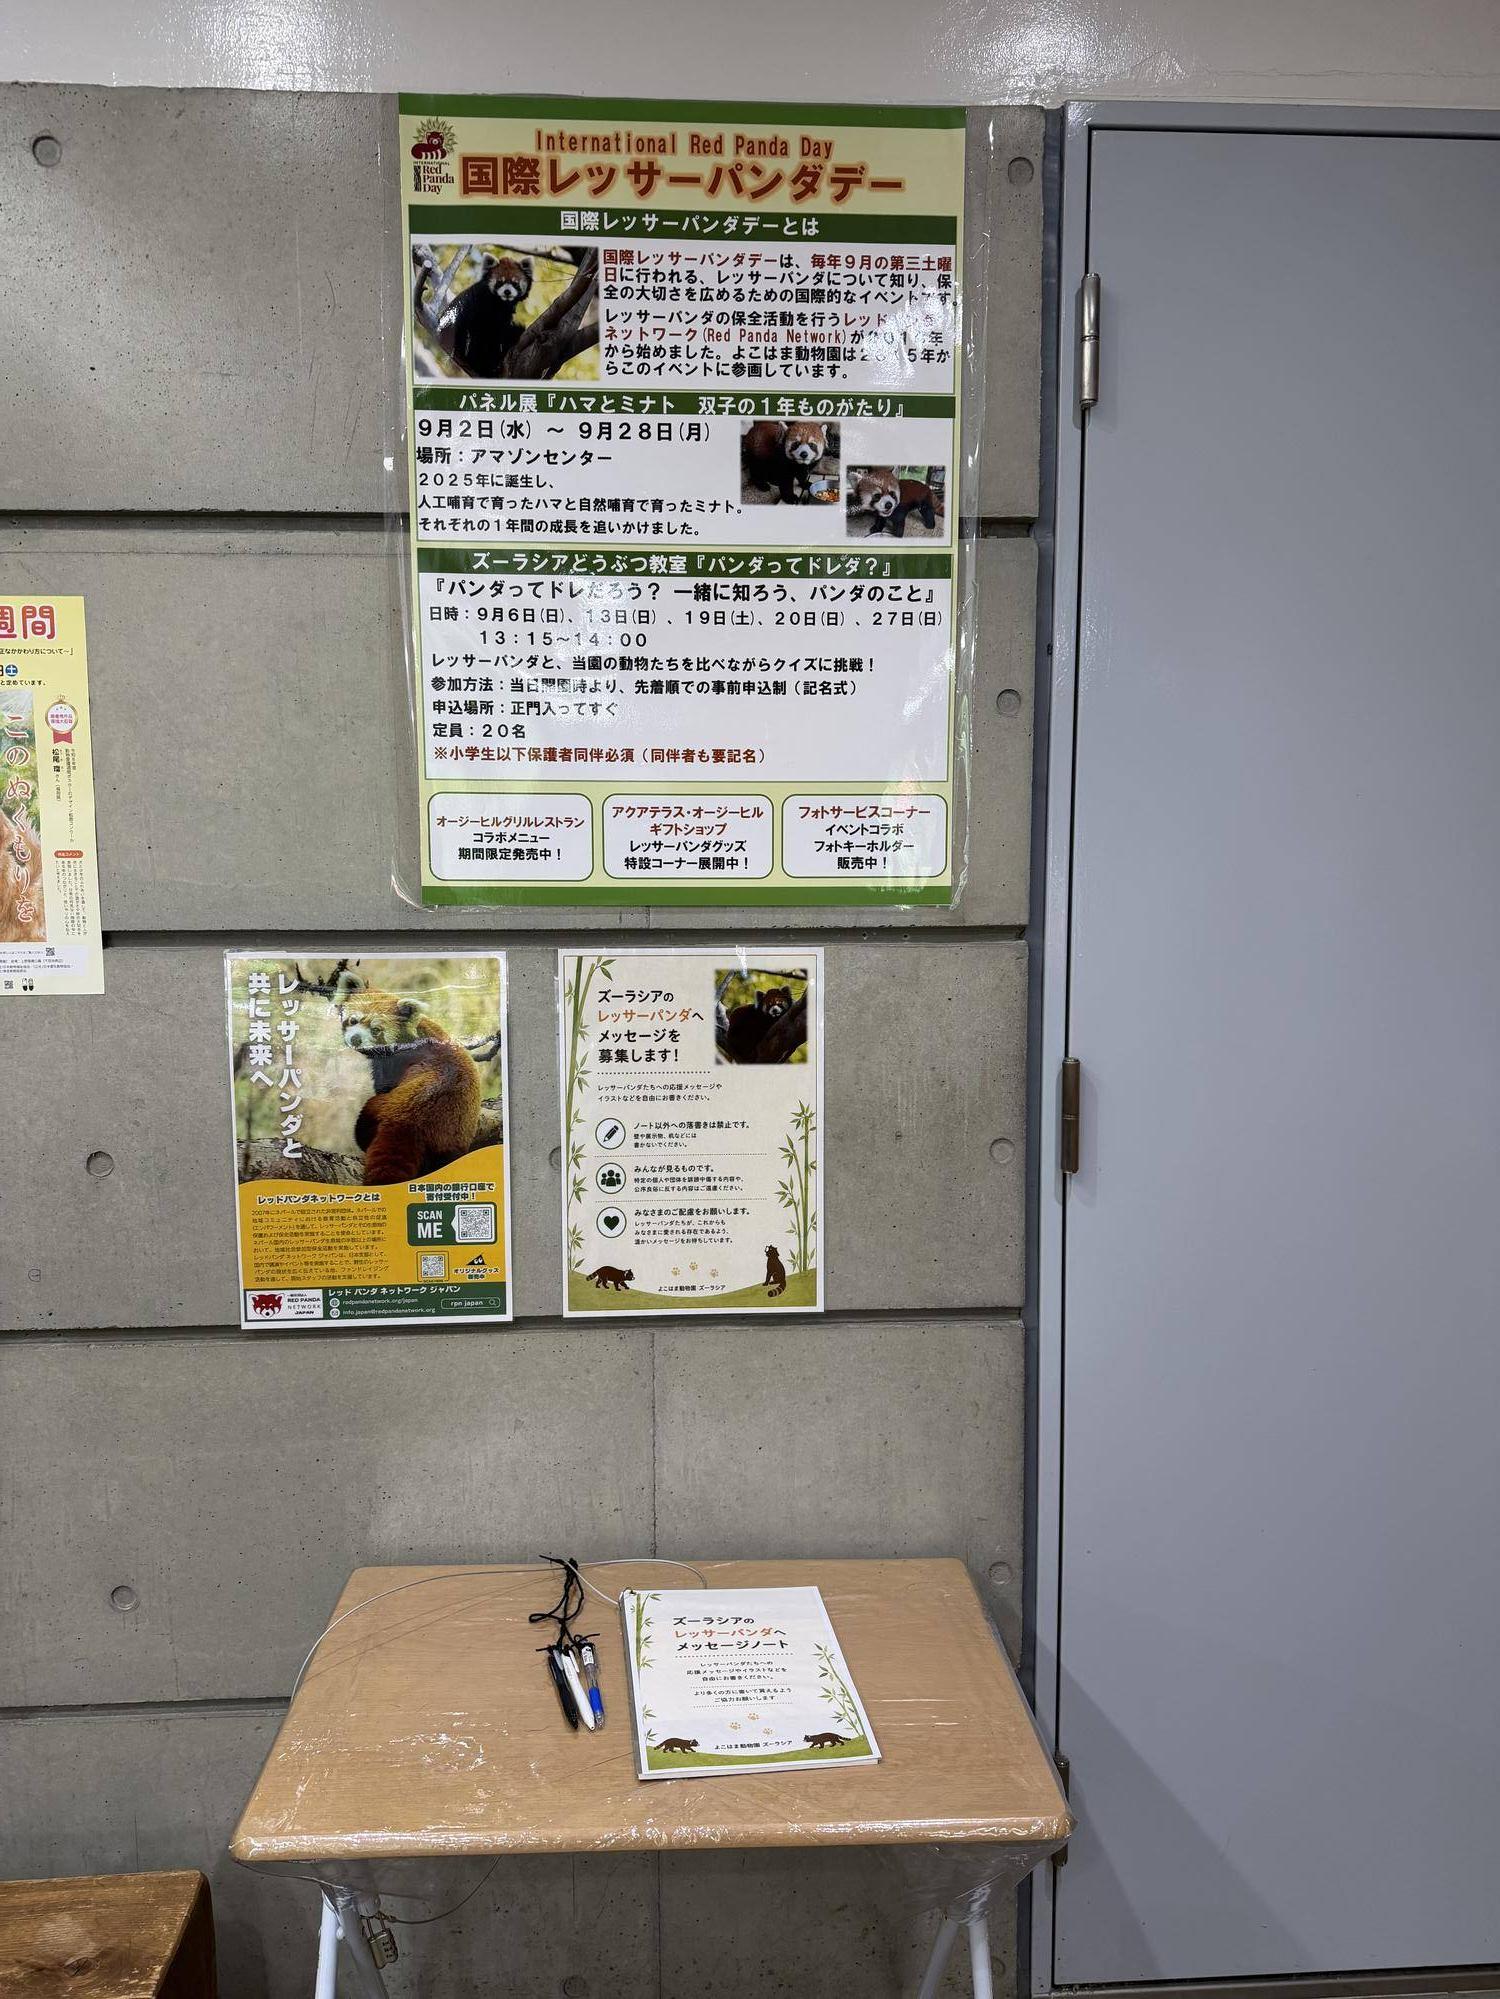 International Red Panda Day
INTERNATIONAL
Red
Panda
Day
国際レッサーパンダデー
国際レッサーパンダデーとは
国際レッサーパンダデーは、毎年９月の第三土曜
日に行われる、レッサーパンダについて知り、保
全の大切さを広めるための国際的なイベントです。
レッサーパンダの保全活動を行うレッド
ネットワーク(Red Panda Network)が
から始めました。よこはま動物園は２０１５年か
らこのイベントに参画しています。
パネル展『ハマとミナト　双子の１年ものがたり』
９月２日(水) ～ ９月２８日(月)
場所：アマゾンセンター
２０２５年に誕生し、
人工哺育で育ったハマと自然哺育で育ったミナト。
それぞれの１年間の成長を追いかけました。
ズーラシアどうぶつ教室『パンダってドレダ？』
『パンダってドレだろう？ 一緒に知ろう、パンダのこと』
日時：９月６日(日)、１３日(日)、１９日(土)、２０日(日)、２７日(日)
１３：１５～１４：００
レッサーパンダと、当園の動物たちを比べながらクイズに挑戦！
参加方法：当日開園時より、先着順での事前申込制（記名式）
申込場所：正門入ってすぐ
定員：２０名
※小学生以下保護者同伴必須（同伴者も要記名）
オージーヒルグリルレストラン
コラボメニュー
期間限定発売中！
アクアテラス・オージーヒル
ギフトショップ
レッサーパンダグッズ
特設コーナー展開中！
フォトサービスコーナー
イベントコラボ
フォトキーホルダー
販売中！
週間
土
このぬくもりを
レッサーパンダと
共に未来へ
レッドパンダネットワークとは
日本国内の銀行口座で
寄付受付中！
SCAN
ME
オリジナルグッズ
販売中
RED PANDA
NETWORK
JAPAN
レッド パンダ ネットワーク ジャパン
redpandanetwork.org/japan
info.japan@redpandanetwork.org
rpn japan
ズーラシアの
レッサーパンダへ
メッセージを
募集します！
レッサーパンダたちへの応援メッセージや
イラストなどを自由にお書きください。
ノート以外への落書きは禁止です。
壁や展示物、机などには
書かないでください。
みんなが見るものです。
特定の個人や団体を誹謗中傷する内容や、
公序良俗に反する内容はご遠慮ください。
みなさまのご配慮をお願いします。
レッサーパンダたちが、これからも
みなさまに愛される存在であるよう、
温かいメッセージをお待ちしています。
よこはま動物園 ズーラシア
ズーラシアの
レッサーパンダへ
メッセージノート
レッサーパンダたちへの
応援メッセージやイラストなどを
自由にお書きください。
より多くの方に書いて貰えるよう
ご協力お願いします
よこはま動物園 ズーラシア